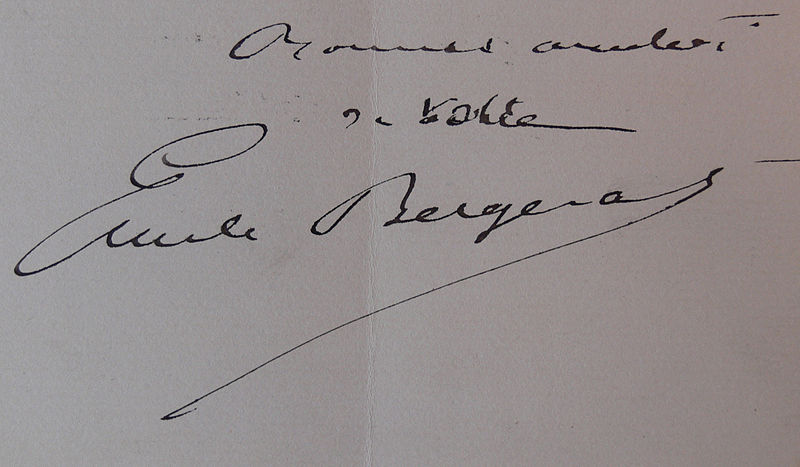 Bonnes amitiés
de votre
Emile Bergerat